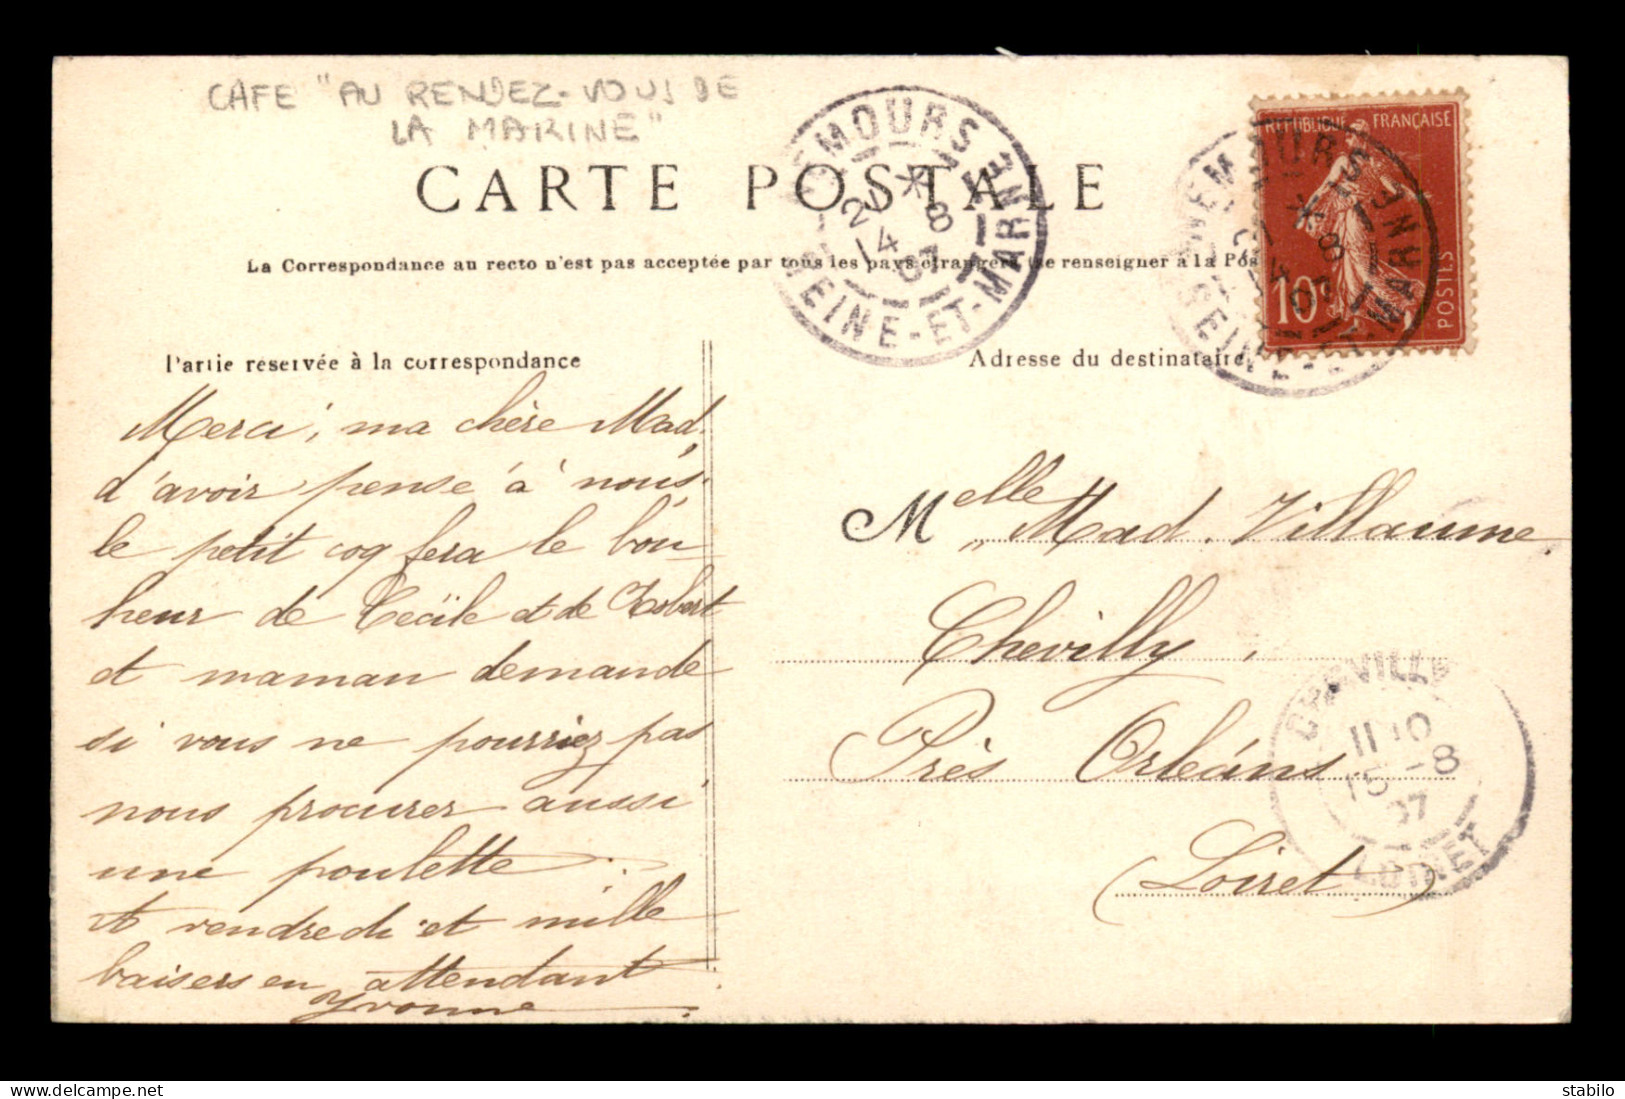 CAFE "AU RENDEZ-VOUS DE
LA MARINE"
CARTE POSTALE
La Correspondance au recto n'est pas acceptée par tous les pays étrangers (se renseigner à la Pos
Partie réservée à la correspondance
Merci, ma chère Mad,
d'avoir pensé à nous.
le petit coq fera le bon-
heur de Cécile et de
et maman demande
si vous ne pourriez pas
nous procurer aussi
une poulette.
A vendredi et mille
baisers en attendant
Yvonne
Adresse du destinataire
Melle Mad. Villaume
Chevilly,
Près Orléans
(Loiret)
NEMOURS
2* 8
14 07
SEINE-ET-MARNE
REPUBLIQUE FRANÇAISE
10c
POSTES
NEMOURS
* 8
14 07
SEINE-ET-MARNE
CHEVILLY
11 10
15 -8
07
LOIRET
stabilo